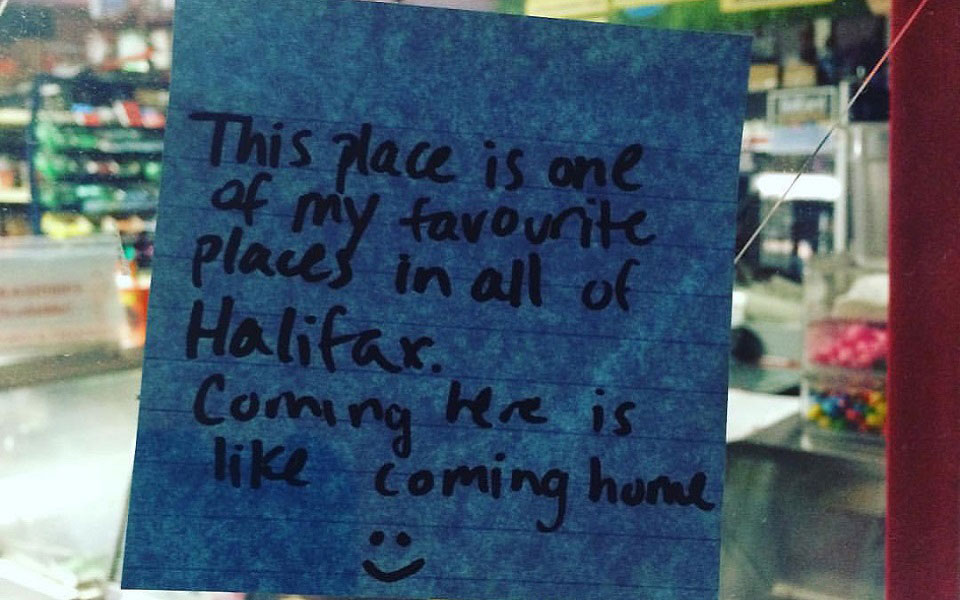 This place is one
of my favourite
places in all of
Halifax.
Coming here is
like coming home